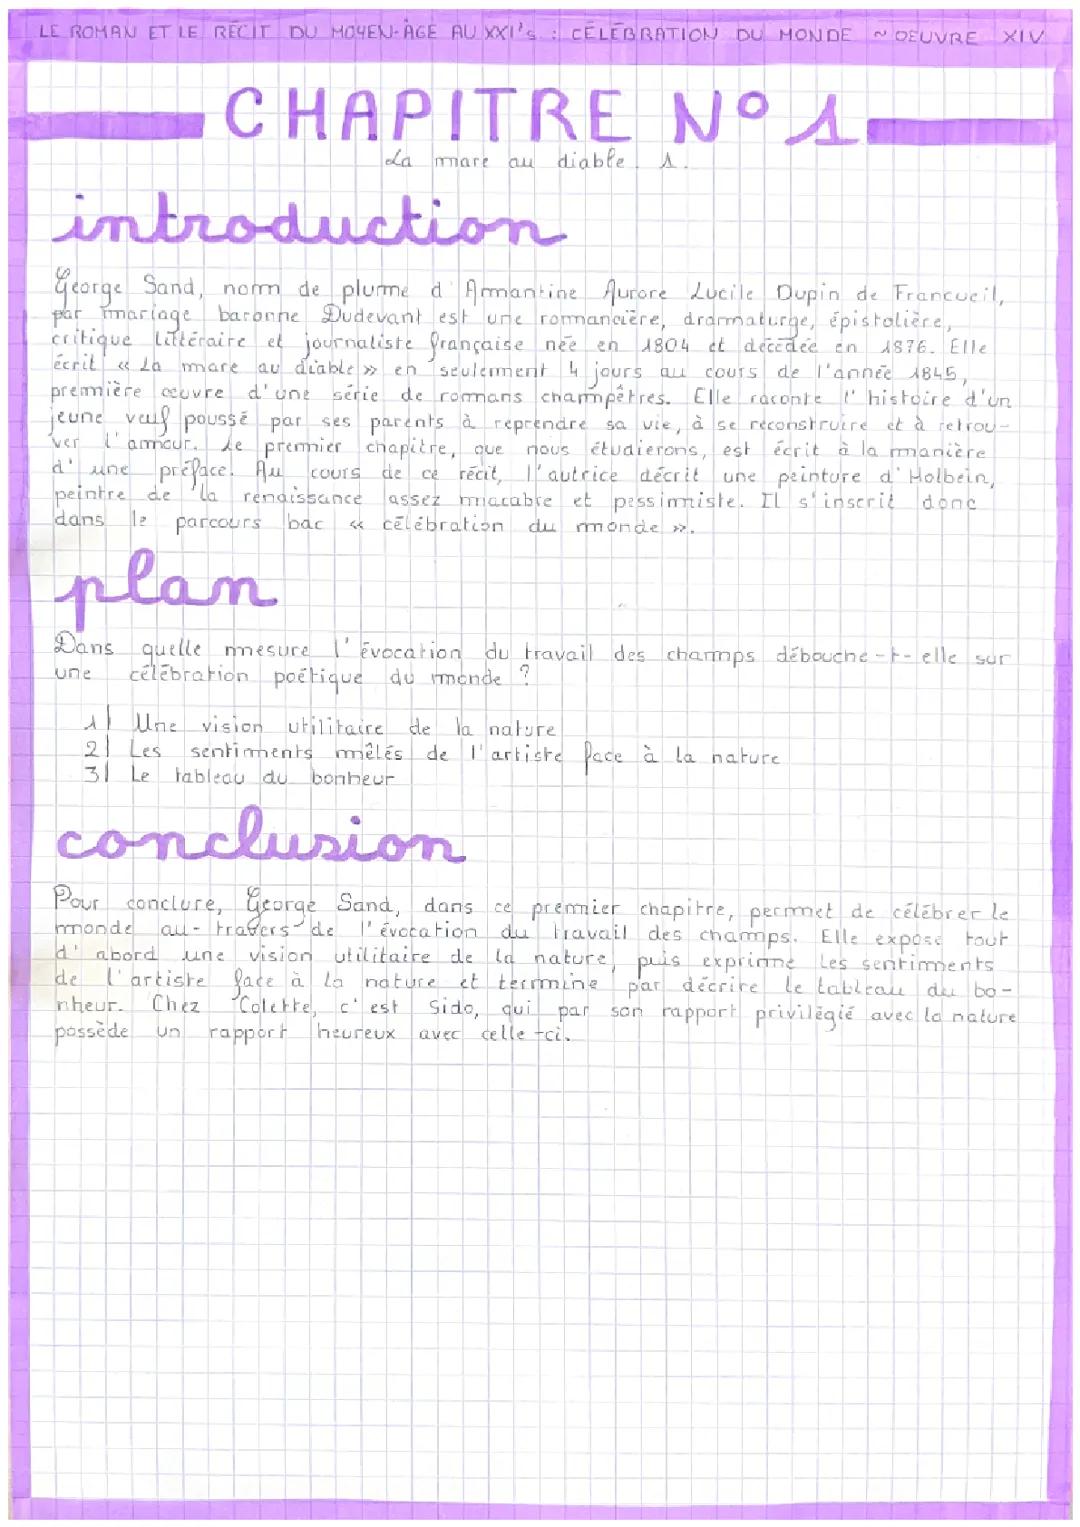 LE ROMAN ET LE RÉCIT DU MOYEN-ÂGE AU XXI's : CÉLÉBRATION DU MONDE ~ OEUVRE XIV
CHAPITRE N° 1
La mare au diable. 1.
introduction
George Sand, nom de plume d'Amantine Aurore Lucile Dupin de Francueil,
par mariage baronne Dudevant est une romancière, dramaturge, épistolière,
critique littéraire et journaliste française née en 1804 et décédée en 1876. Elle
écrit « La mare au diable » en seulement 4 jours au cours de l'année 1845,
première œuvre d'une série de romans champêtres. Elle raconte l'histoire d'un
jeune veuf poussé par ses parents à reprendre sa vie, à se reconstruire et à retrou-
ver l'amour. Le premier chapitre, que nous étudierons, est écrit à la manière
d'une préface. Au cours de ce récit, l'autrice décrit une peinture d'Holbein,
peintre de la renaissance assez macabre et pessimiste. Il s'inscrit donc
dans le parcours bac « célébration du monde ».
plan
Dans quelle mesure l'évocation du travail des champs débouche-t-elle sur
une célébration poétique du monde ?
1| Une vision utilitaire de la nature
2| Les sentiments mêlés de l'artiste face à la nature
3| Le tableau du bonheur
conclusion
Pour conclure, George Sand, dans ce premier chapitre, permet de célébrer le
monde au-travers de l'évocation du travail des champs. Elle expose tout
d'abord une vision utilitaire de la nature, puis exprime les sentiments
de l'artiste face à la nature et termine par décrire le tableau du bo-
nheur. Chez Colette, c'est Sido, qui par son rapport privilégié avec la nature
possède un rapport heureux avec celle-ci.